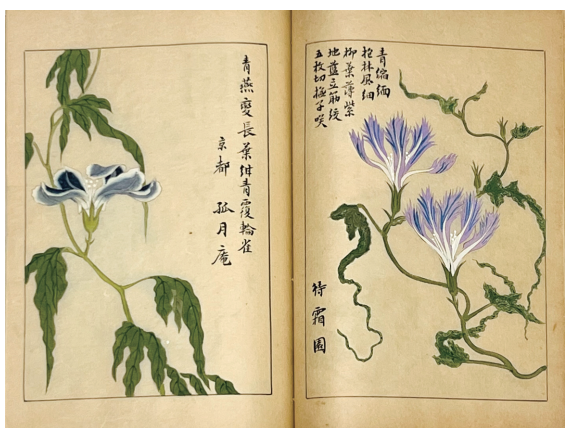 青縮緬
林風細
柳葉薄紫
地藍立筋
五枚切撫子咲
待霜園
青燕變長葉紺青覆輪雀
京都 孤月庵